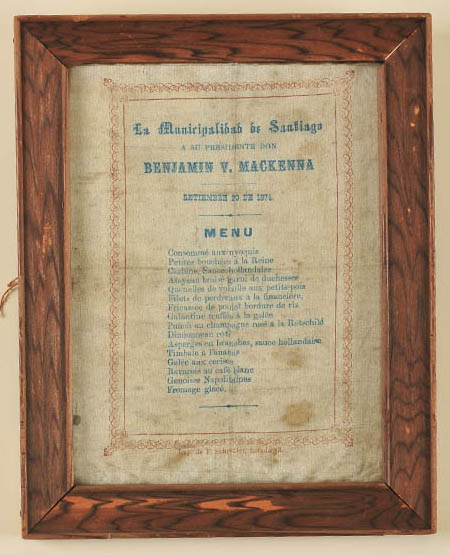 La Municipalidad de Santiago
A SU PRESIDENTE DON
BENJAMIN V. MACKENNA
SETIEMBRE 20 DE 1874
MENU
Consommé aux nyoquis
Petites bouchées à la Reine
Corbine, Sauce hollandaise
Aloyeau braisé garni de duchesses
Quenelles de volaille aux petits-pois
Filets de perdreaux à la financière
Fricassée de poulet bordure de ris
Galantine truffée à la gelée
Punch au champagne rosé à la Rotschild
Dindonneau rôti
Asperges en branches, sauce hollandaise
Timbale à l'ananas
Gelée aux cerises
Bavarois au café blanc
Genoises Napolitaines
Fromage glacé.
Imp. de F. Schrebler,